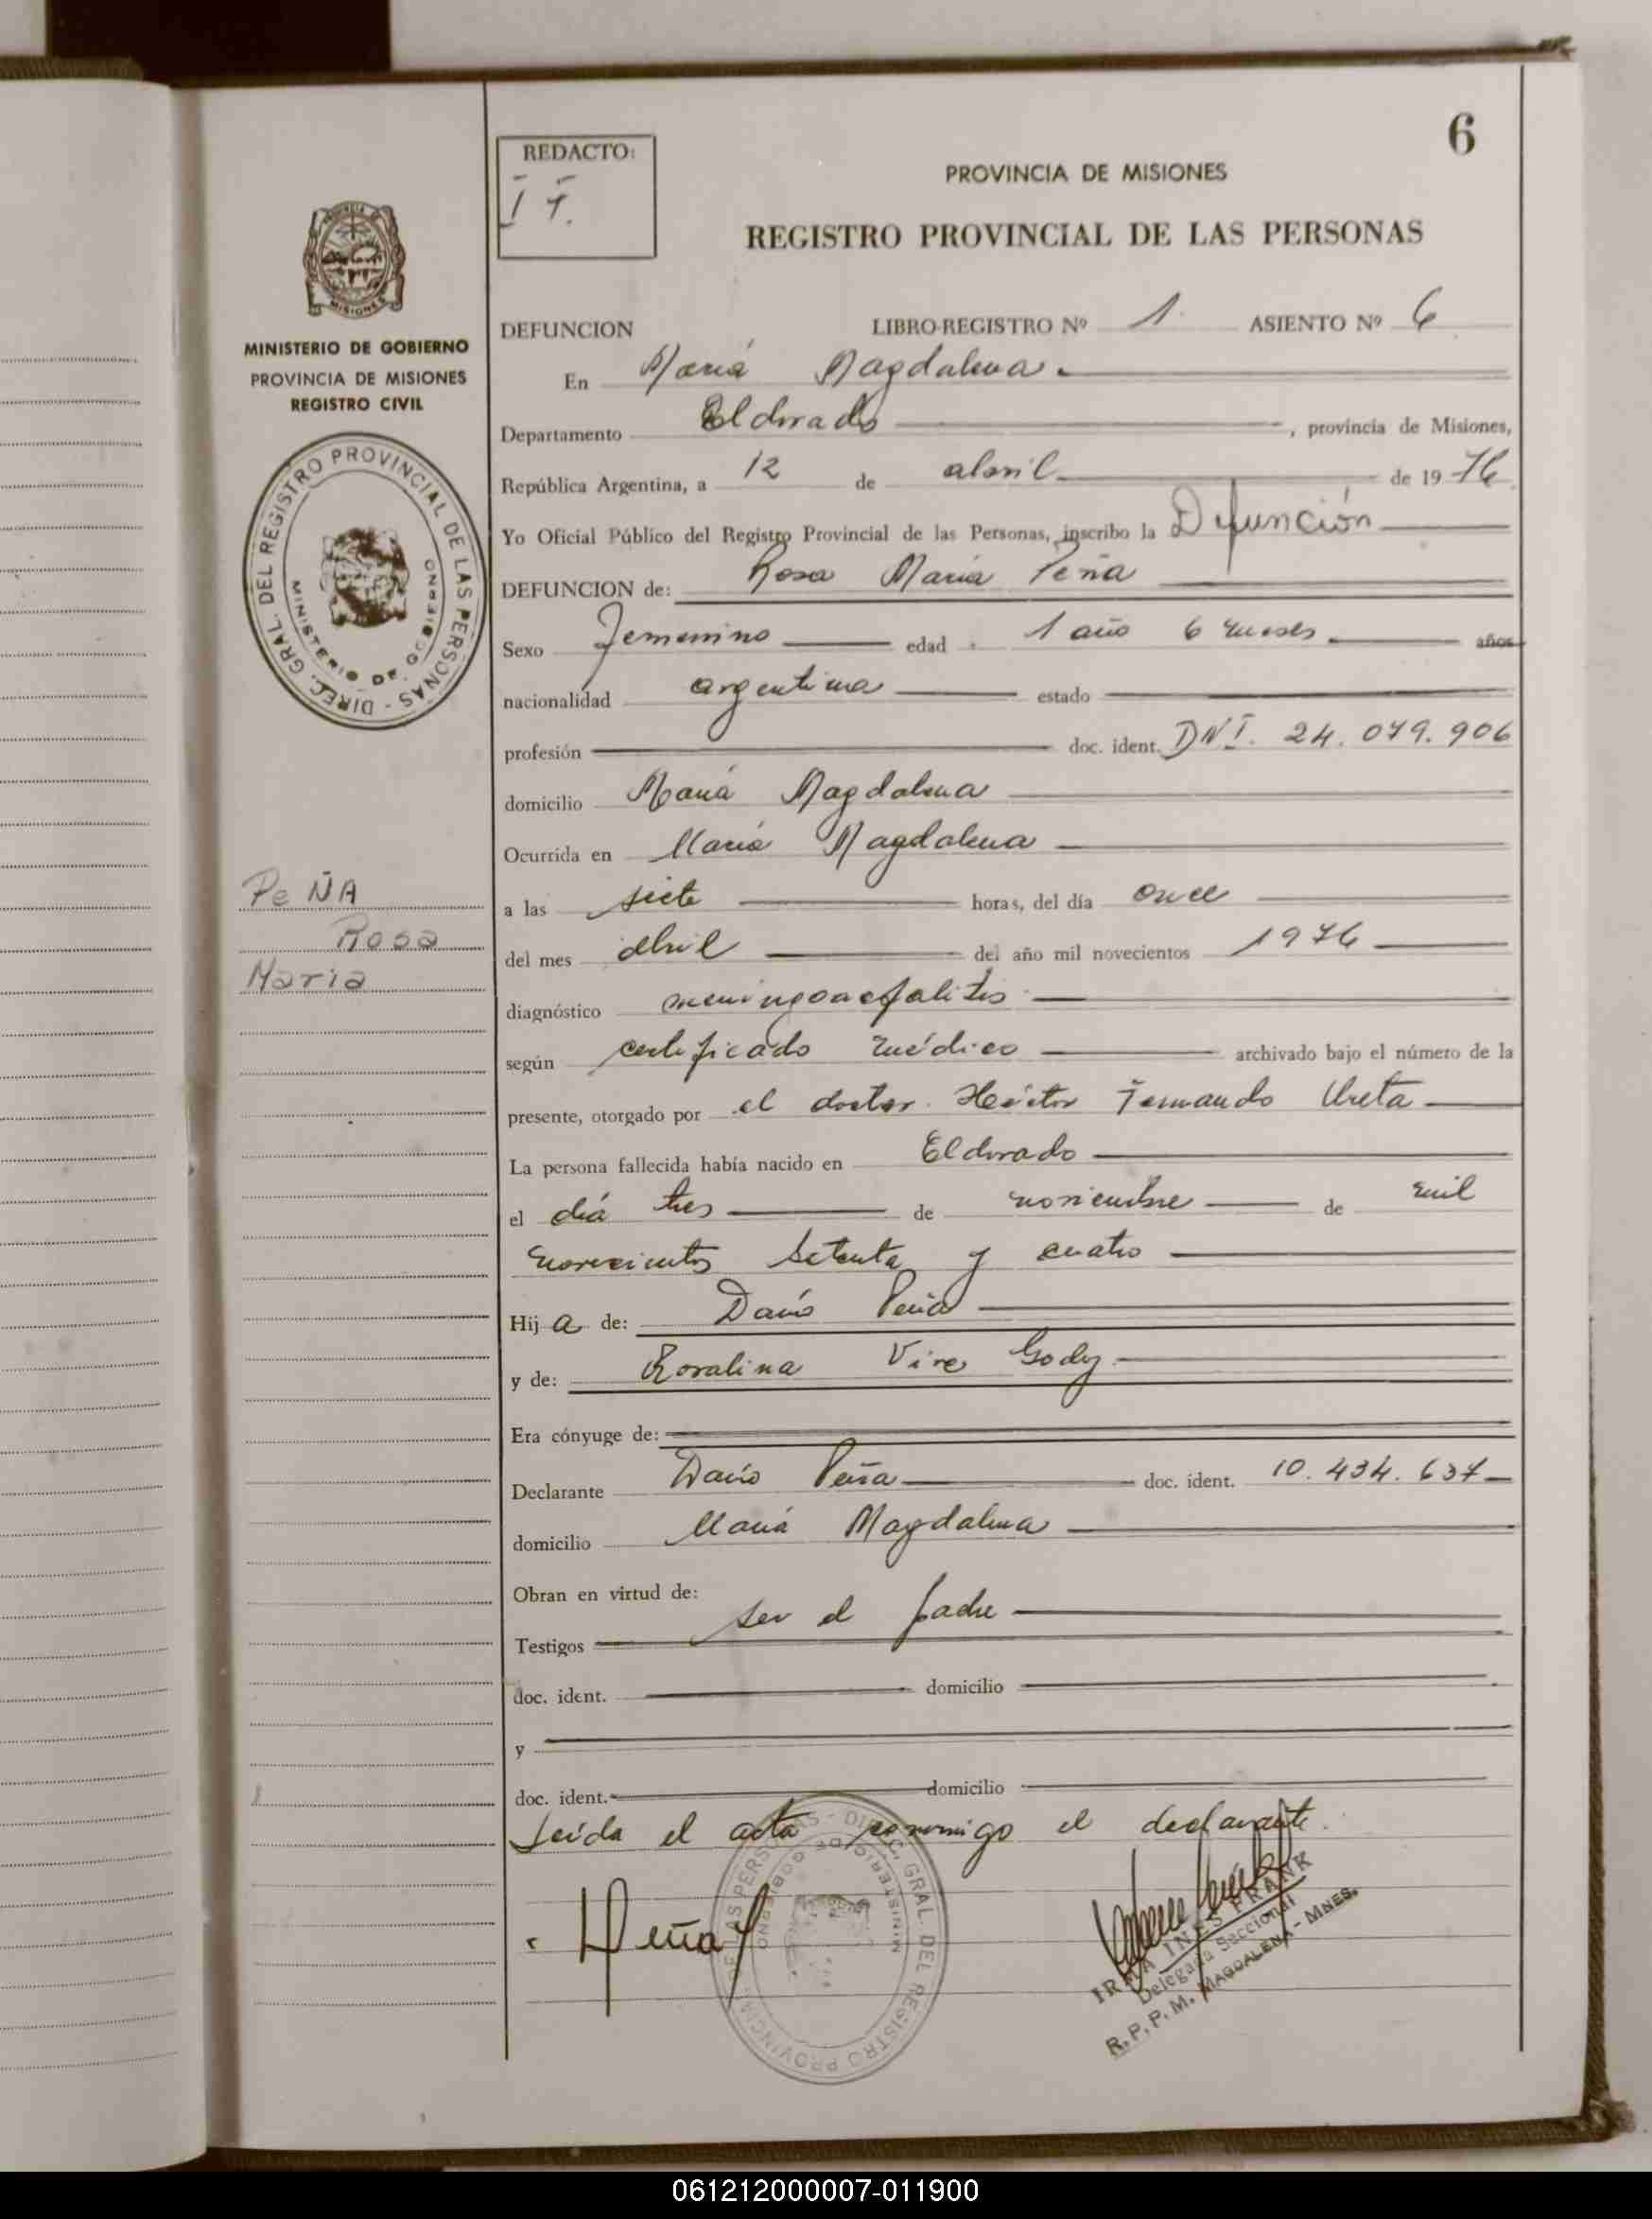 6
REDACTO:
I F.
PROVINCIA DE MISIONES
REGISTRO PROVINCIAL DE LAS PERSONAS
MINISTERIO DE GOBIERNO
PROVINCIA DE MISIONES
REGISTRO CIVIL
DIREC. GRAL. DEL REGISTRO PROVINCIAL DE LAS PERSONAS -
MINISTERIO DE GOBIERNO
PeÑA
Rosa
Maria
DEFUNCION LIBRO-REGISTRO Nº 1 ASIENTO Nº 6
En María Magdalena
Departamento Eldorado, provincia de Misiones,
República Argentina, a 12 de abril de 1976
Yo Oficial Público del Registro Provincial de las Personas, inscribo la Defunción
DEFUNCION de: Rosa María Peña
Sexo Femenino edad 1 año 6 meses años
nacionalidad argentina estado
profesión doc. ident. DNI. 24.079.906
domicilio María Magdalena
Ocurrida en María Magdalena
a las siete horas, del día once
del mes abril del año mil novecientos 1976
diagnóstico
según certificado médico archivado bajo el número de la
presente, otorgado por el doctor Héctor Fernando Ureta
La persona fallecida había nacido en Eldorado
el día tres de noviembre de mil
novecientos setenta y cuatro
Hija de: Darío Peña
y de: Rosalina Godoy
Era cónyuge de:
Declarante Darío Peña doc. ident. 10.434.637
domicilio María Magdalena
Obran en virtud de: ser el padre
Testigos
doc. ident. domicilio
y
doc. ident. domicilio
Leída el acta conmigo el declarante.
Peña
DIREC. GRAL. DEL REGISTRO PROVINCIAL DE LAS PERSONAS -
MINISTERIO DE GOBIERNO
IRMA INES FRANK
Delegada Seccional
R.P.P.M. MAGDALENA - MNES.
061212000007-011900